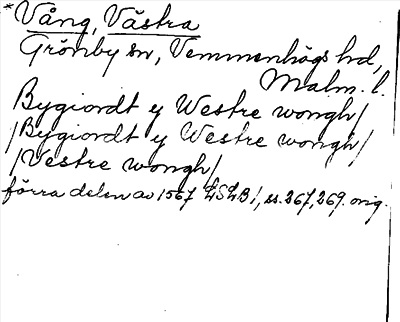 *Vång, Västra
Grönby sn, Vemmenhögs hd,
Malm. l.
Bygiordt y Westre wongh/
/Bygiordt y Westre wongh/
/Vestre wongh/
förra delen av 1567 LSLB!, ss. 267, 269. orig.